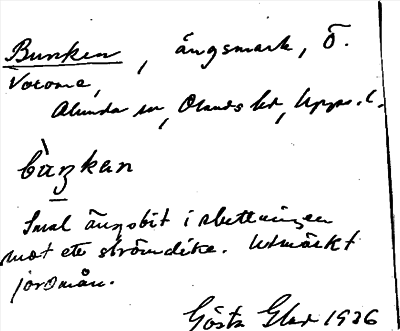 Bunken, ängsmark, Ö.
Vocome,
Alunda sn, Olands hd, Upps. l.
bùŋkan
Smal ängsbit i sluttningen
mot ett strömdike. Utmärkt
jordmån.
Gösta Glad 1926